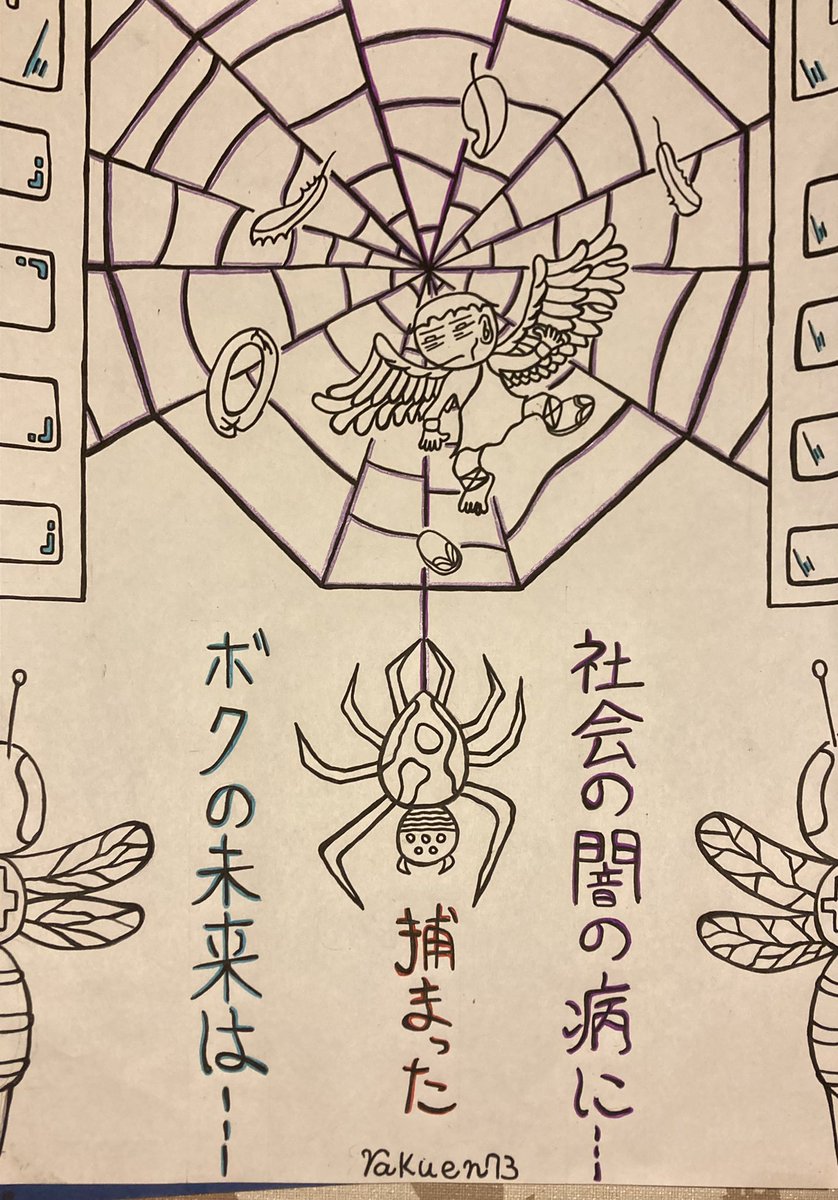 社会の闇の病に…
捕まった
ボクの未来は…
Yakuen73